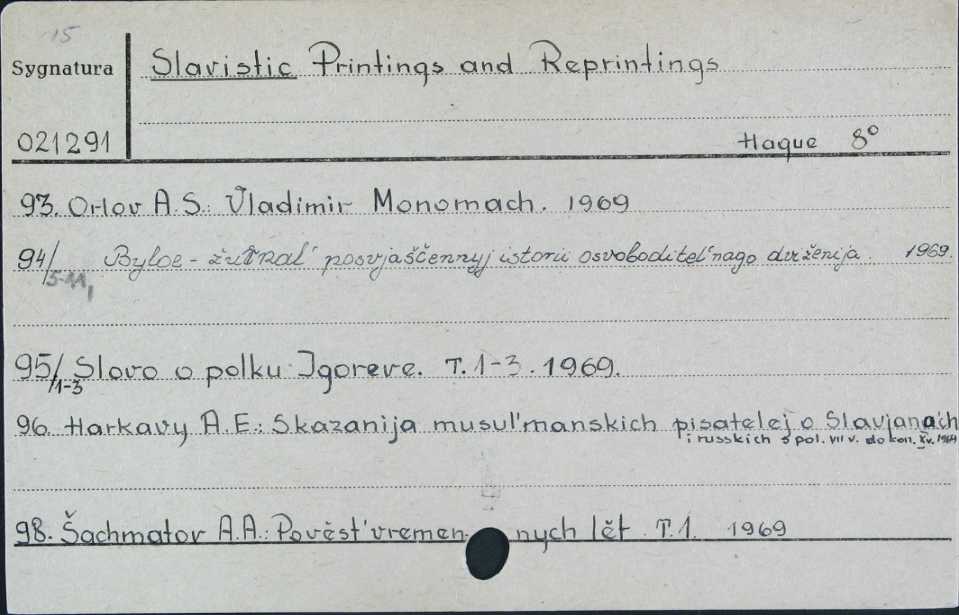 15
Sygnatura
Slavistic Printings and Reprintings
021291
Hague 8°
93. Orlov A.S.: Vladimir Monomach. 1969
94/5-11, Byloe - žurnal' posvjaščennyj istorii osvoboditel'nago dviženija. 1969.
95/1-3 Slovo o polku Igoreve. T. 1-3. 1969.
96. Harkavy A.E.: Skazanija musul'manskich pisatelej o Slavjanach
i russkich s pol. VII v. do kon. X v. 1969
98. Šachmatov A.A.: Pověst' vremennych lět. T.1. 1969